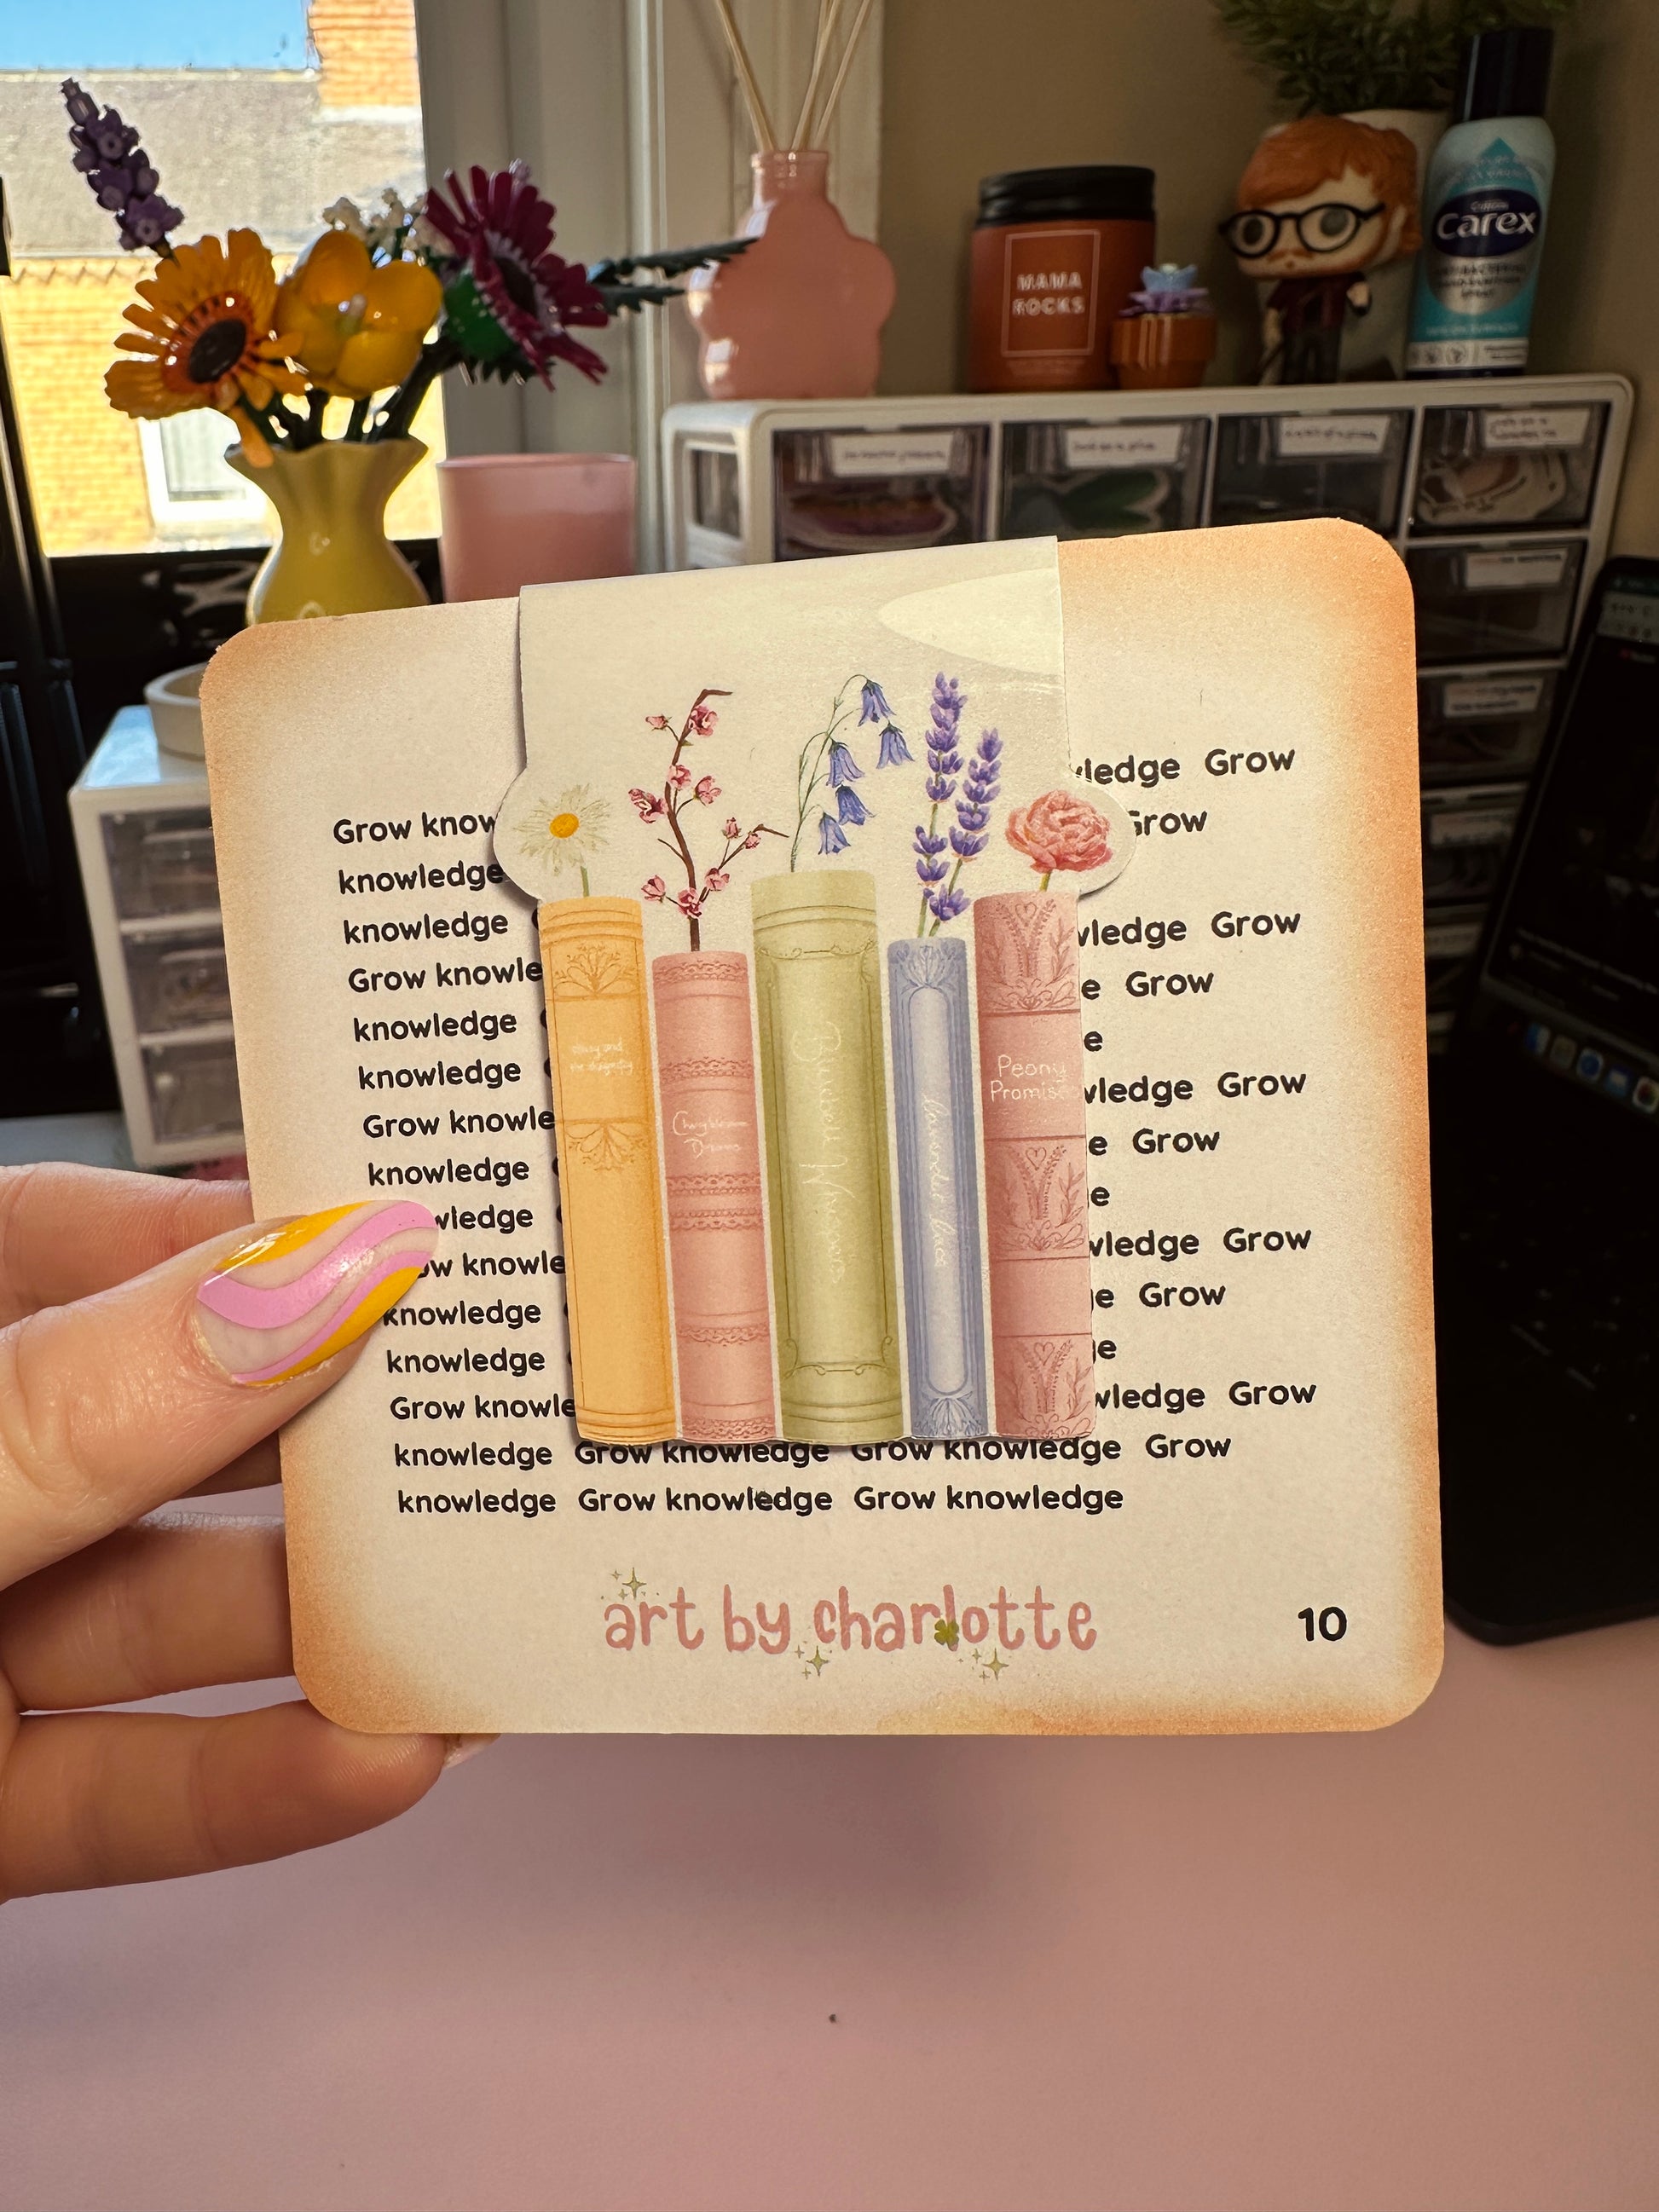 MAMA
ROCKS
Carex
wledge Grow
Grow know
Grow
knowledge
knowledge
wledge Grow
Grow knowle
e Grow
knowledge
e
knowledge
wledge Grow
Grow knowle
e Grow
knowledge
e
wledge
wledge Grow
ow knowle
ge Grow
knowledge
ge
knowledge
wledge Grow
Grow knowle
knowledge Grow knowledge Grow knowledge Grow
knowledge Grow knowledge Grow knowledge
Daisy and
the dragonfly
Cherryblossom
Dreams
Bluebell Whispers
Lavender Lace
Peony
Promise
art by charlotte
10